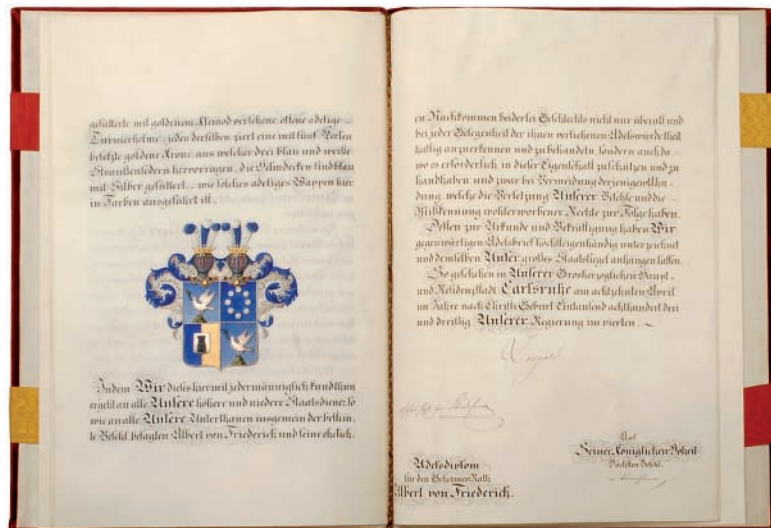 gefütterte mit goldenem Kleinod versehene offene adelige
Turnierhelme, jeden derselben ziert eine mit fünf Perlen
besetzte goldene Krone aus welcher drei blau und weiße
Straußenfedern hervorragen, die Helmdecken sind blau
mit Silber gefüttert, wie solches adeliges Wappen hier
in Farben ausgeführt ist.
Indem Wir dieses hiermit jedermänniglich kund thun
ergeht an alle Unsere höhere und niedere Staatsdiener, so
wie an alle Unsere Unterthanen insgemein der bestim,
te Befehl, besagten Albert von Friederich und seine ehelich,
en Nachkommen beiderlei Geschlechts nicht nur überall und
bei jeder Gelegenheit der ihnen verliehenen Adelswürde theil
haftig anzuerkennen und zu behandeln, sondern auch da
wo es erforderlich in dieser Eigenschaft zu schützen und zu
handhaben und zwar bei Vermeidung derjenigen Ahn-
dung, welche die Verletzung Unserer Befehle und die
Mißkennung wohlerworbener Rechte zur Folge haben.
Dessen zur Urkunde und Bekräftigung haben Wir
gegenwärtigen Adelsbrief höchsteigenhändig unterzeichnet
und demselben Unser großes Staatssiegel anhängen lassen.
So geschehen in Unserer Großherzoglichen Haupt-
und Residenzstadt Carlsruhe am achtzehnten April
im Jahre nach Christi Geburt Eintausend achthundert drei
und dreißig, Unserer Regierung im vierten.
Leopold
Auf
Seiner Königlichen Hoheit
Höchsten Befehl.
Adelsdiplom
für den Geheimen Rath
Albert von Friederich.